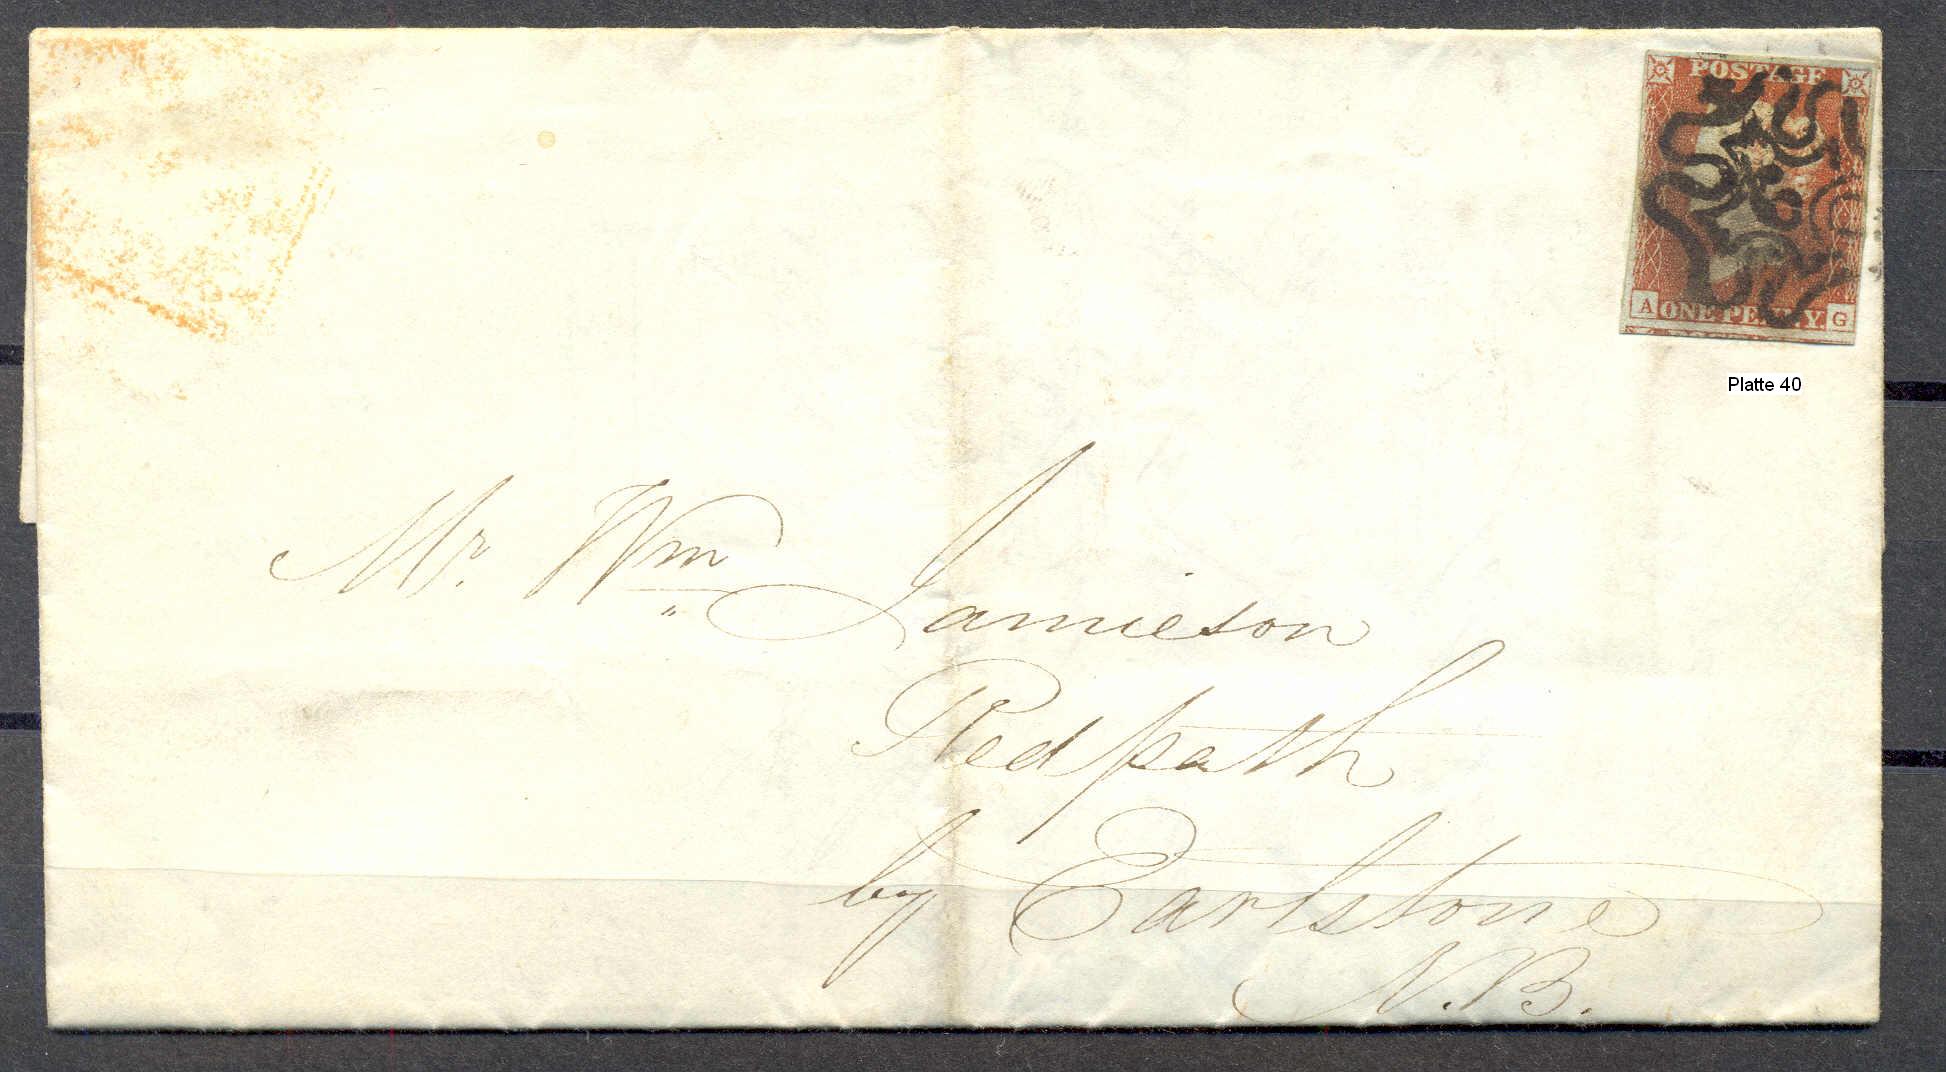 POSTAGE
A ONE PENNY. G
Platte 40
Mr. Wm Jamieson
Redpath
by Earlstone
N.B.